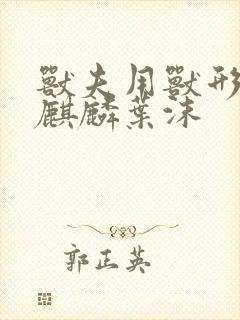 獸夫用獸形
麒麟葉沫
郭正英